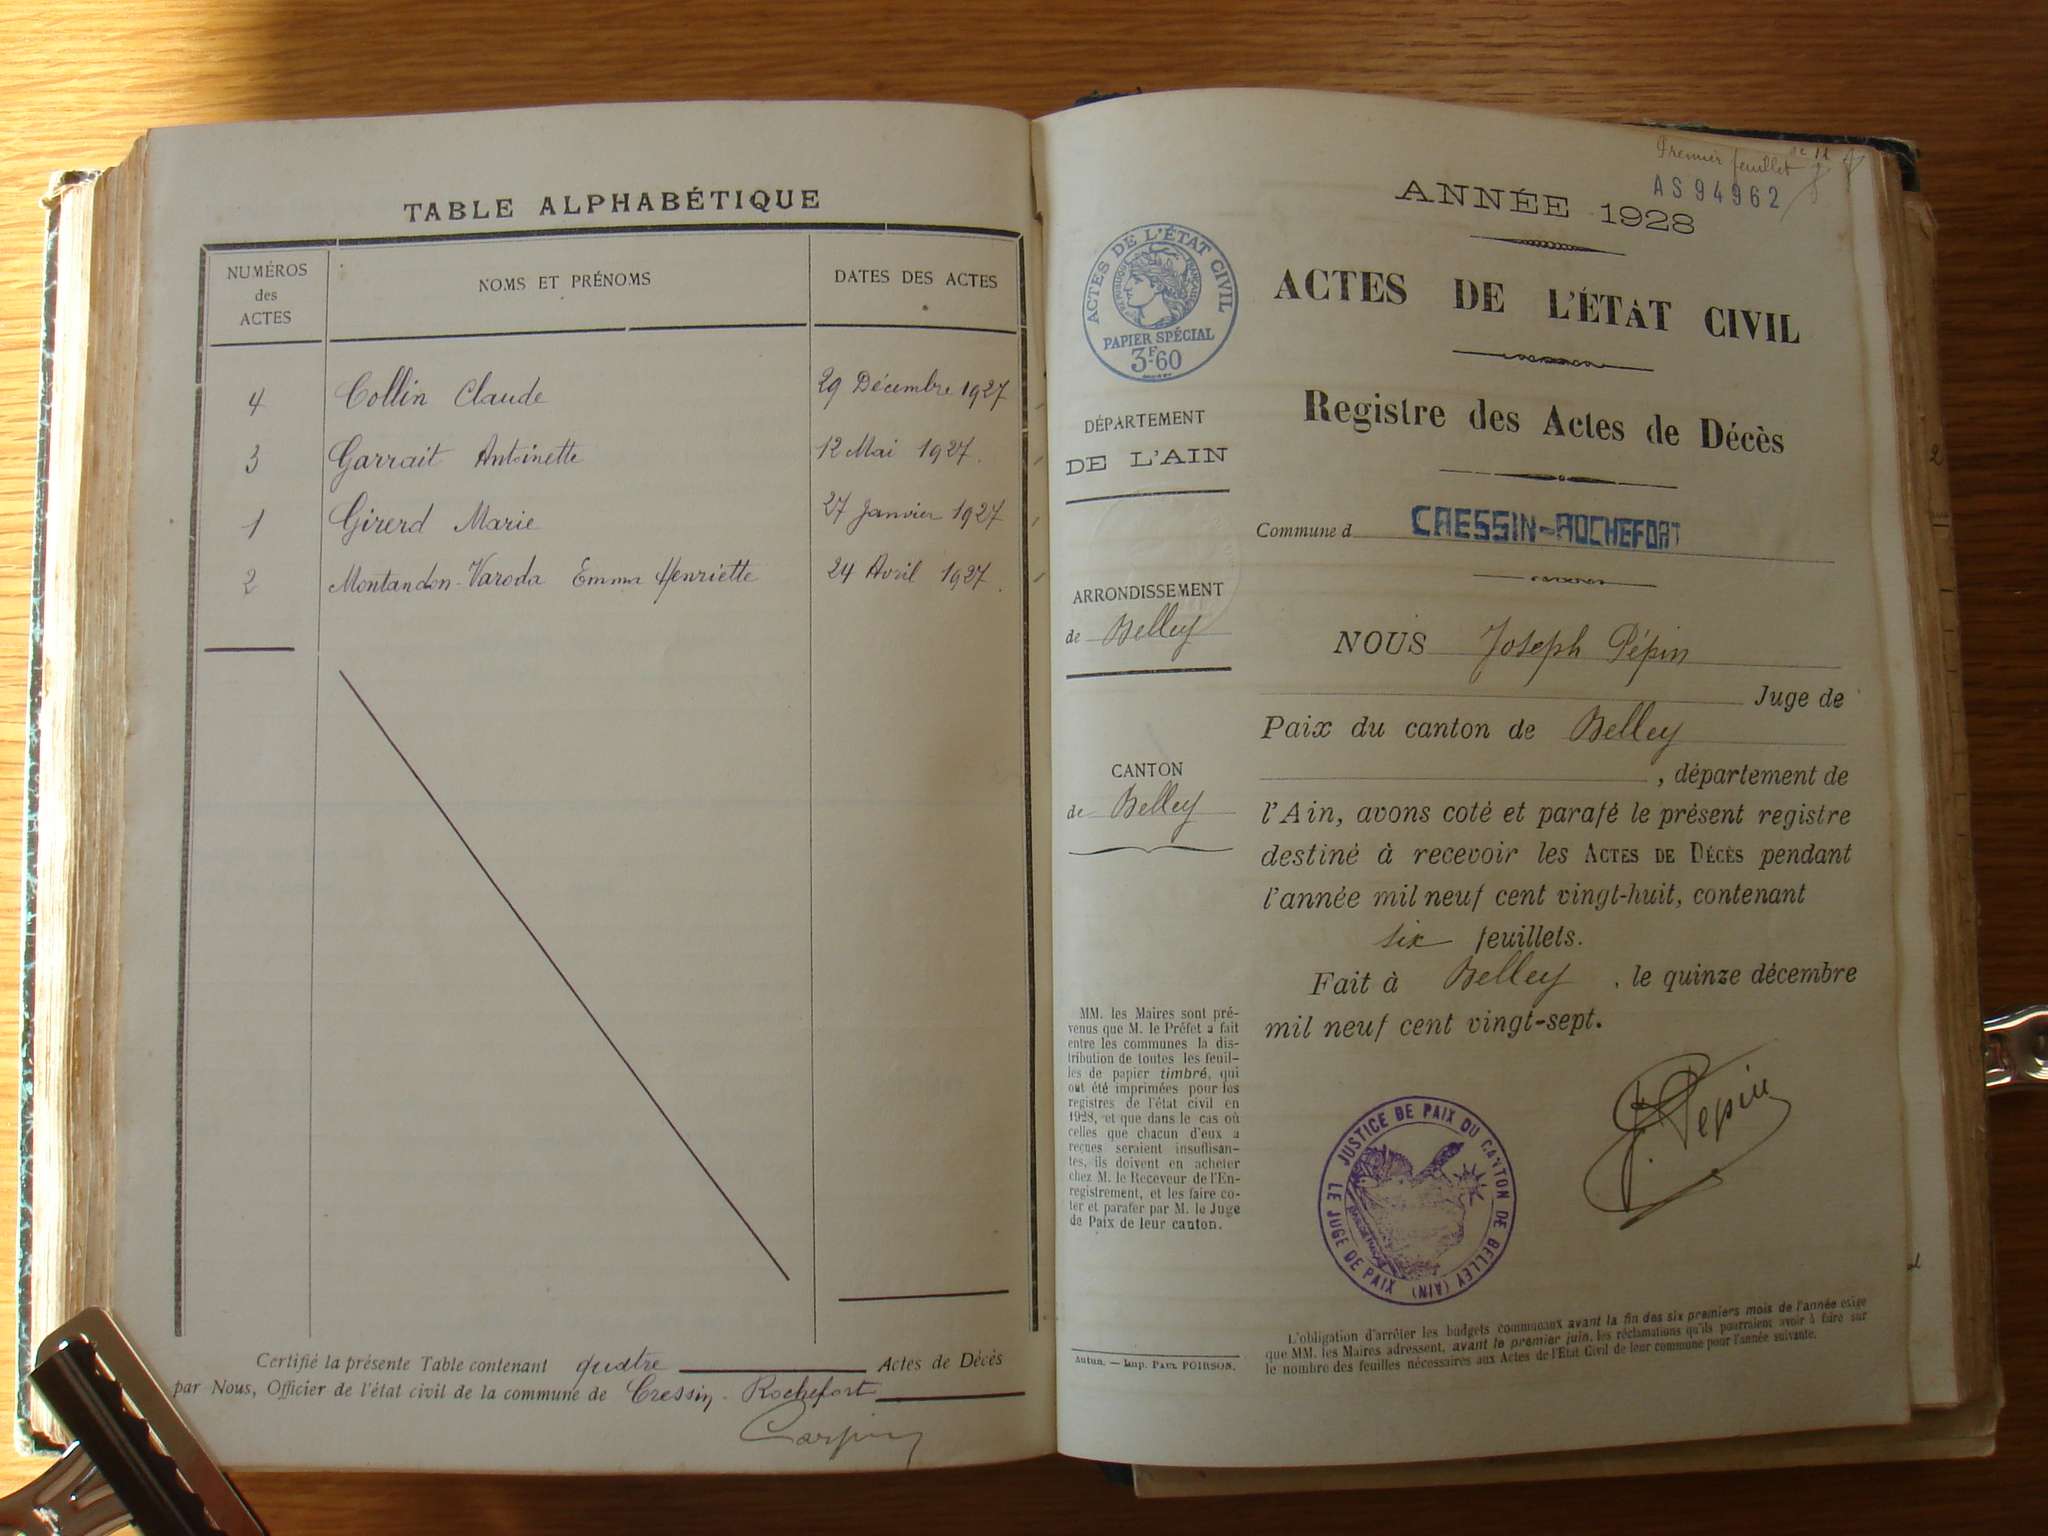 TABLE ALPHABÉTIQUE
NUMÉROS des ACTES
NOMS ET PRÉNOMS
DATES DES ACTES
4 Collin Claude 29 Décembre 1927
3 Garrait Antoinette 12 Mai 1927.
1 Girerd Marie 27 Janvier 1927
2 Montandon-Varoda Emma Henriette 24 Avril 1927.
Certifié la présente Table contenant quatre Actes de Décès
par Nous, Officier de l'état civil de la commune de Cressin-Rochefort
Premier feuillet
AS94962
ANNÉE 1928
ACTES DE L'ÉTAT CIVIL
RÉPUBLIQUE FRANÇAISE
PAPIER SPÉCIAL
3F.60
DÉPARTEMENT
DE L'AIN
ARRONDISSEMENT
de Belley
CANTON
de Belley
MM. les Maires sont pré-
venus que M. le Préfet a fait
entre les communes la dis-
tribution de toutes les feuil-
les de papier timbré, qui
ont été imprimées pour les
registres de l'état civil en
1928, et que dans le cas où
celles que chacun d'eux a
reçues seraient insuffisan-
tes, ils doivent en acheter
chez M. le Receveur de l'En-
registrement, et les faire co-
ter et parafer par M. le Juge
de Paix de leur canton.
Autun. — Imp. PAUL POIRSON.
ACTES DE L'ÉTAT CIVIL
Registre des Actes de Décès
Commune d CRESSIN-ROCHEFORT
NOUS Joseph Pépin
Juge de
Paix du canton de Belley
, département de
l'Ain, avons coté et parafé le présent registre
destiné à recevoir les ACTES DE DÉCÈS pendant
l'année mil neuf cent vingt-huit, contenant
six feuillets.
Fait à Belley, le quinze décembre
mil neuf cent vingt-sept.
J. Pépin
JUSTICE DE PAIX DU CANTON DE BELLEY (AIN)
LE JUGE DE PAIX
L'obligation d'arrêter les budgets communaux avant la fin des six premiers mois de l'année exige
que MM. les Maires adressent, avant le premier juin, les réclamations qu'ils pourraient avoir à faire sur
le nombre des feuilles nécessaires aux Actes de l'État Civil de leur commune pour l'année suivante.